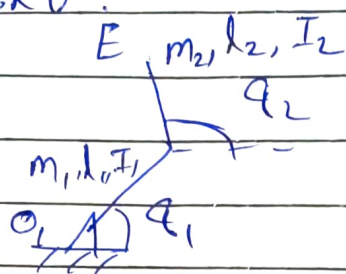 E m₂, l₂, I₂
q₂
m₁, l₁, I₁
O₁ q₁